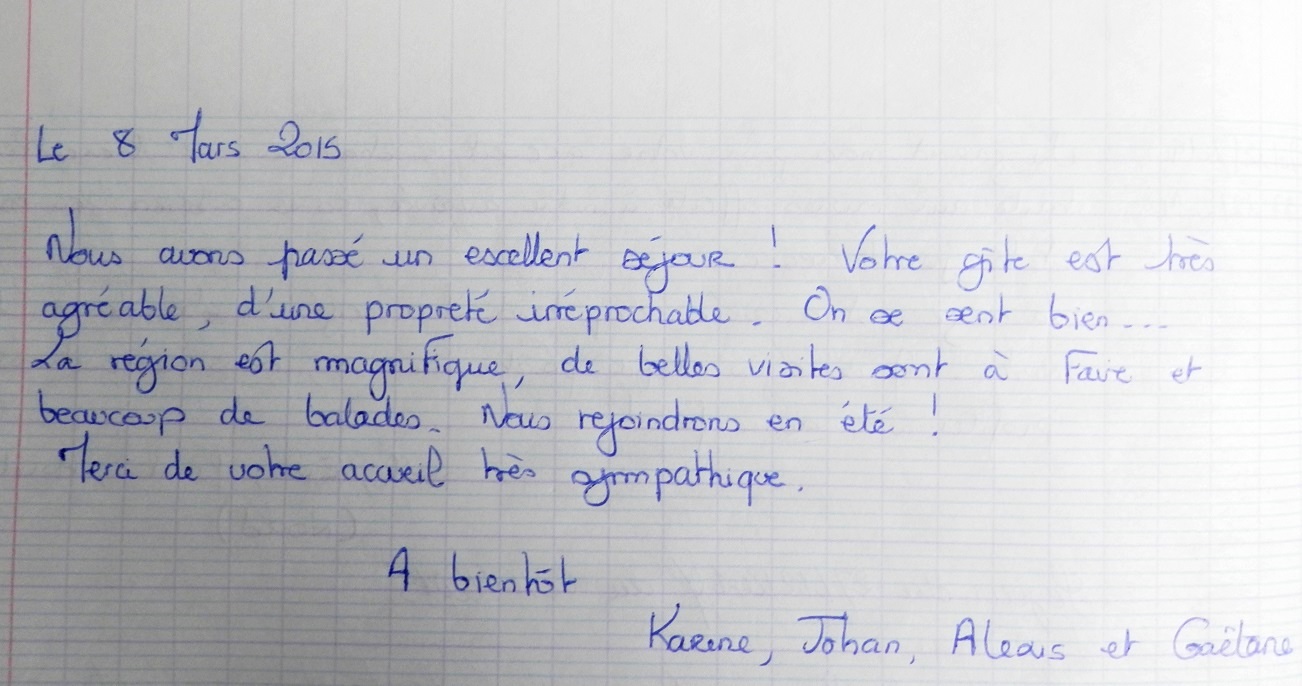 Le 8 Mars 2015
Nous avons passé un excellent séjour ! Votre gîte est très
agréable, d'une propreté irréprochable. On se sent bien...
La région est magnifique, de belles visites sont à faire et
beaucoup de balades. Nous rejoindrons en été !
Merci de votre accueil très sympathique.
A bientôt
Karene, Johan, Alexis et Gaëlane